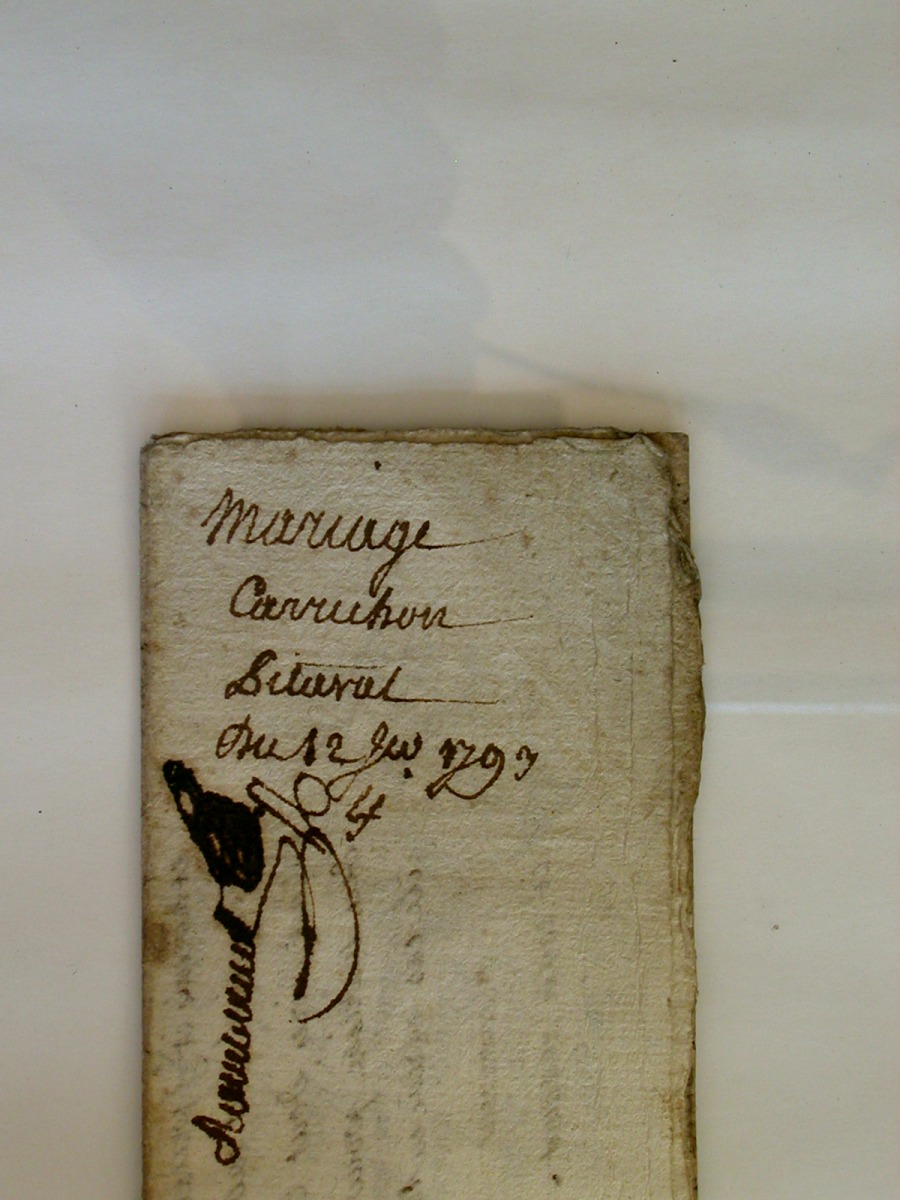 Mariage
Carruhon
Litaval
Du 12 Jer. 1793
4